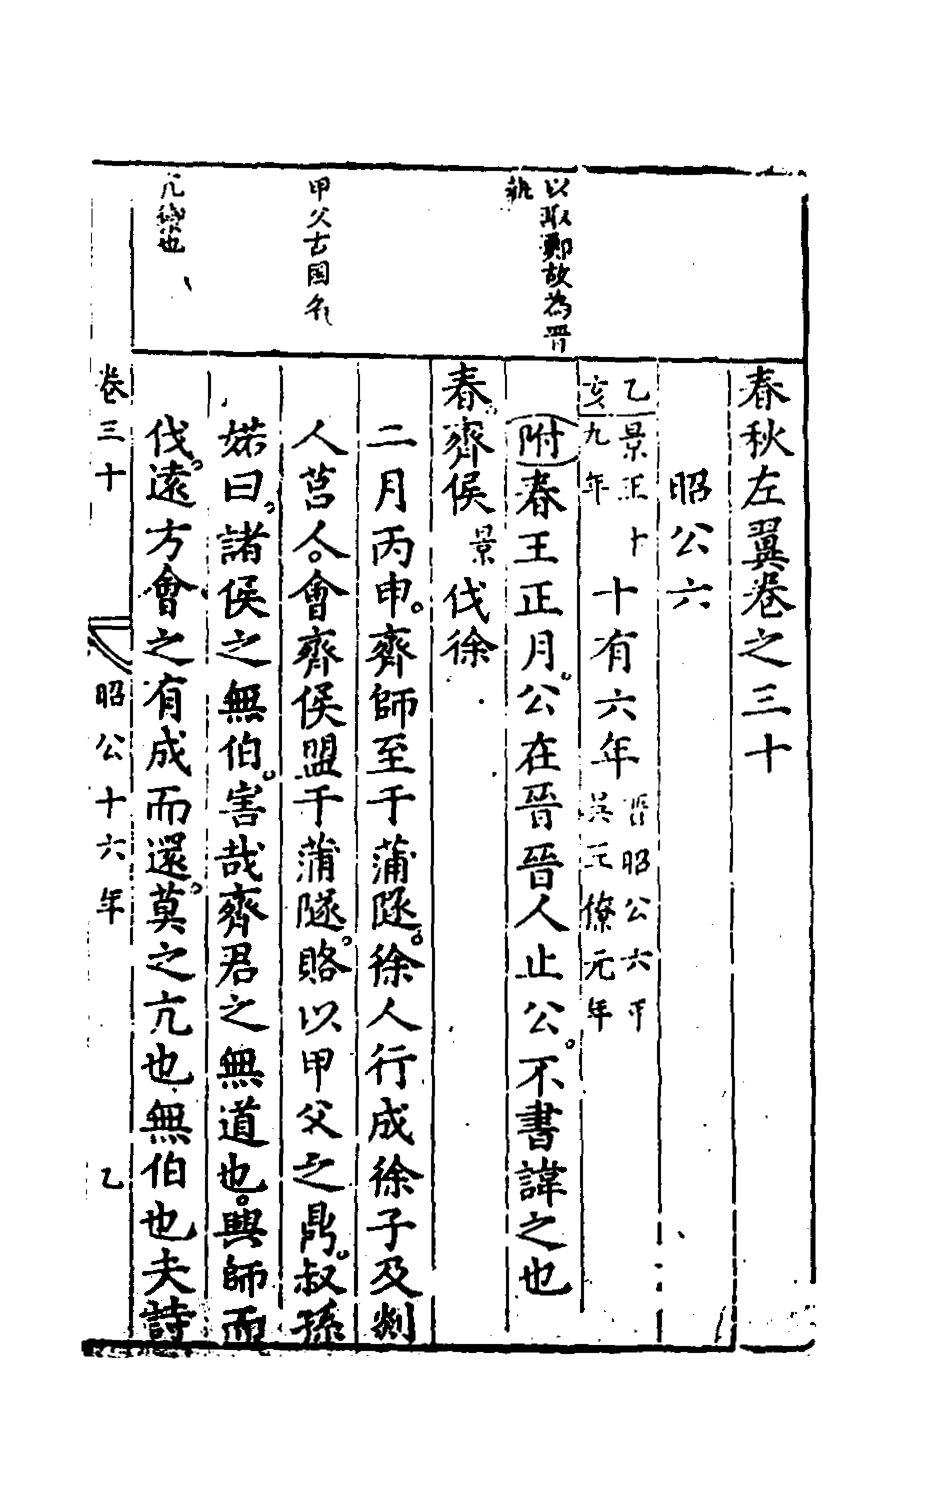 以取鄭故為晋
執
甲父古國名
亢禦也
春秋左翼卷之三十
昭公六
乙亥 景王十九年 十有六年 晋昭公六年 吳王僚元年
附春王正月。公在晉晉人止公。不書諱之也
春。齊侯景伐徐
二月丙申。齊師至于蒲隧。徐人行成徐子及郯
人莒人。會齊侯盟于蒲隧。賂以甲父之鼎。叔孫
婼曰。諸侯之無伯。害哉齊君之無道也。興師而
伐。遠方會之有成而還。莫之亢也無伯也夫詩
卷三十 昭公十六年 乙